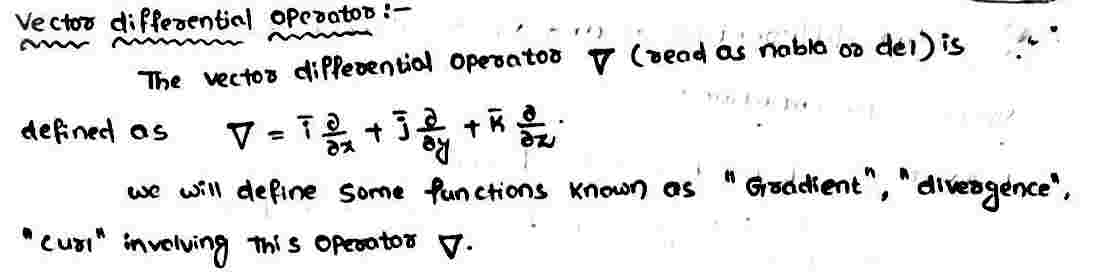 Vector differential operator :-
The vector differential operator ∇ (read as nabla or del) is
defined as ∇ = i̅ ∂/∂x + j̅ ∂/∂y + k̅ ∂/∂z.
we will define some functions known as "Gradient", "divergence",
"curl" involving this operator ∇.